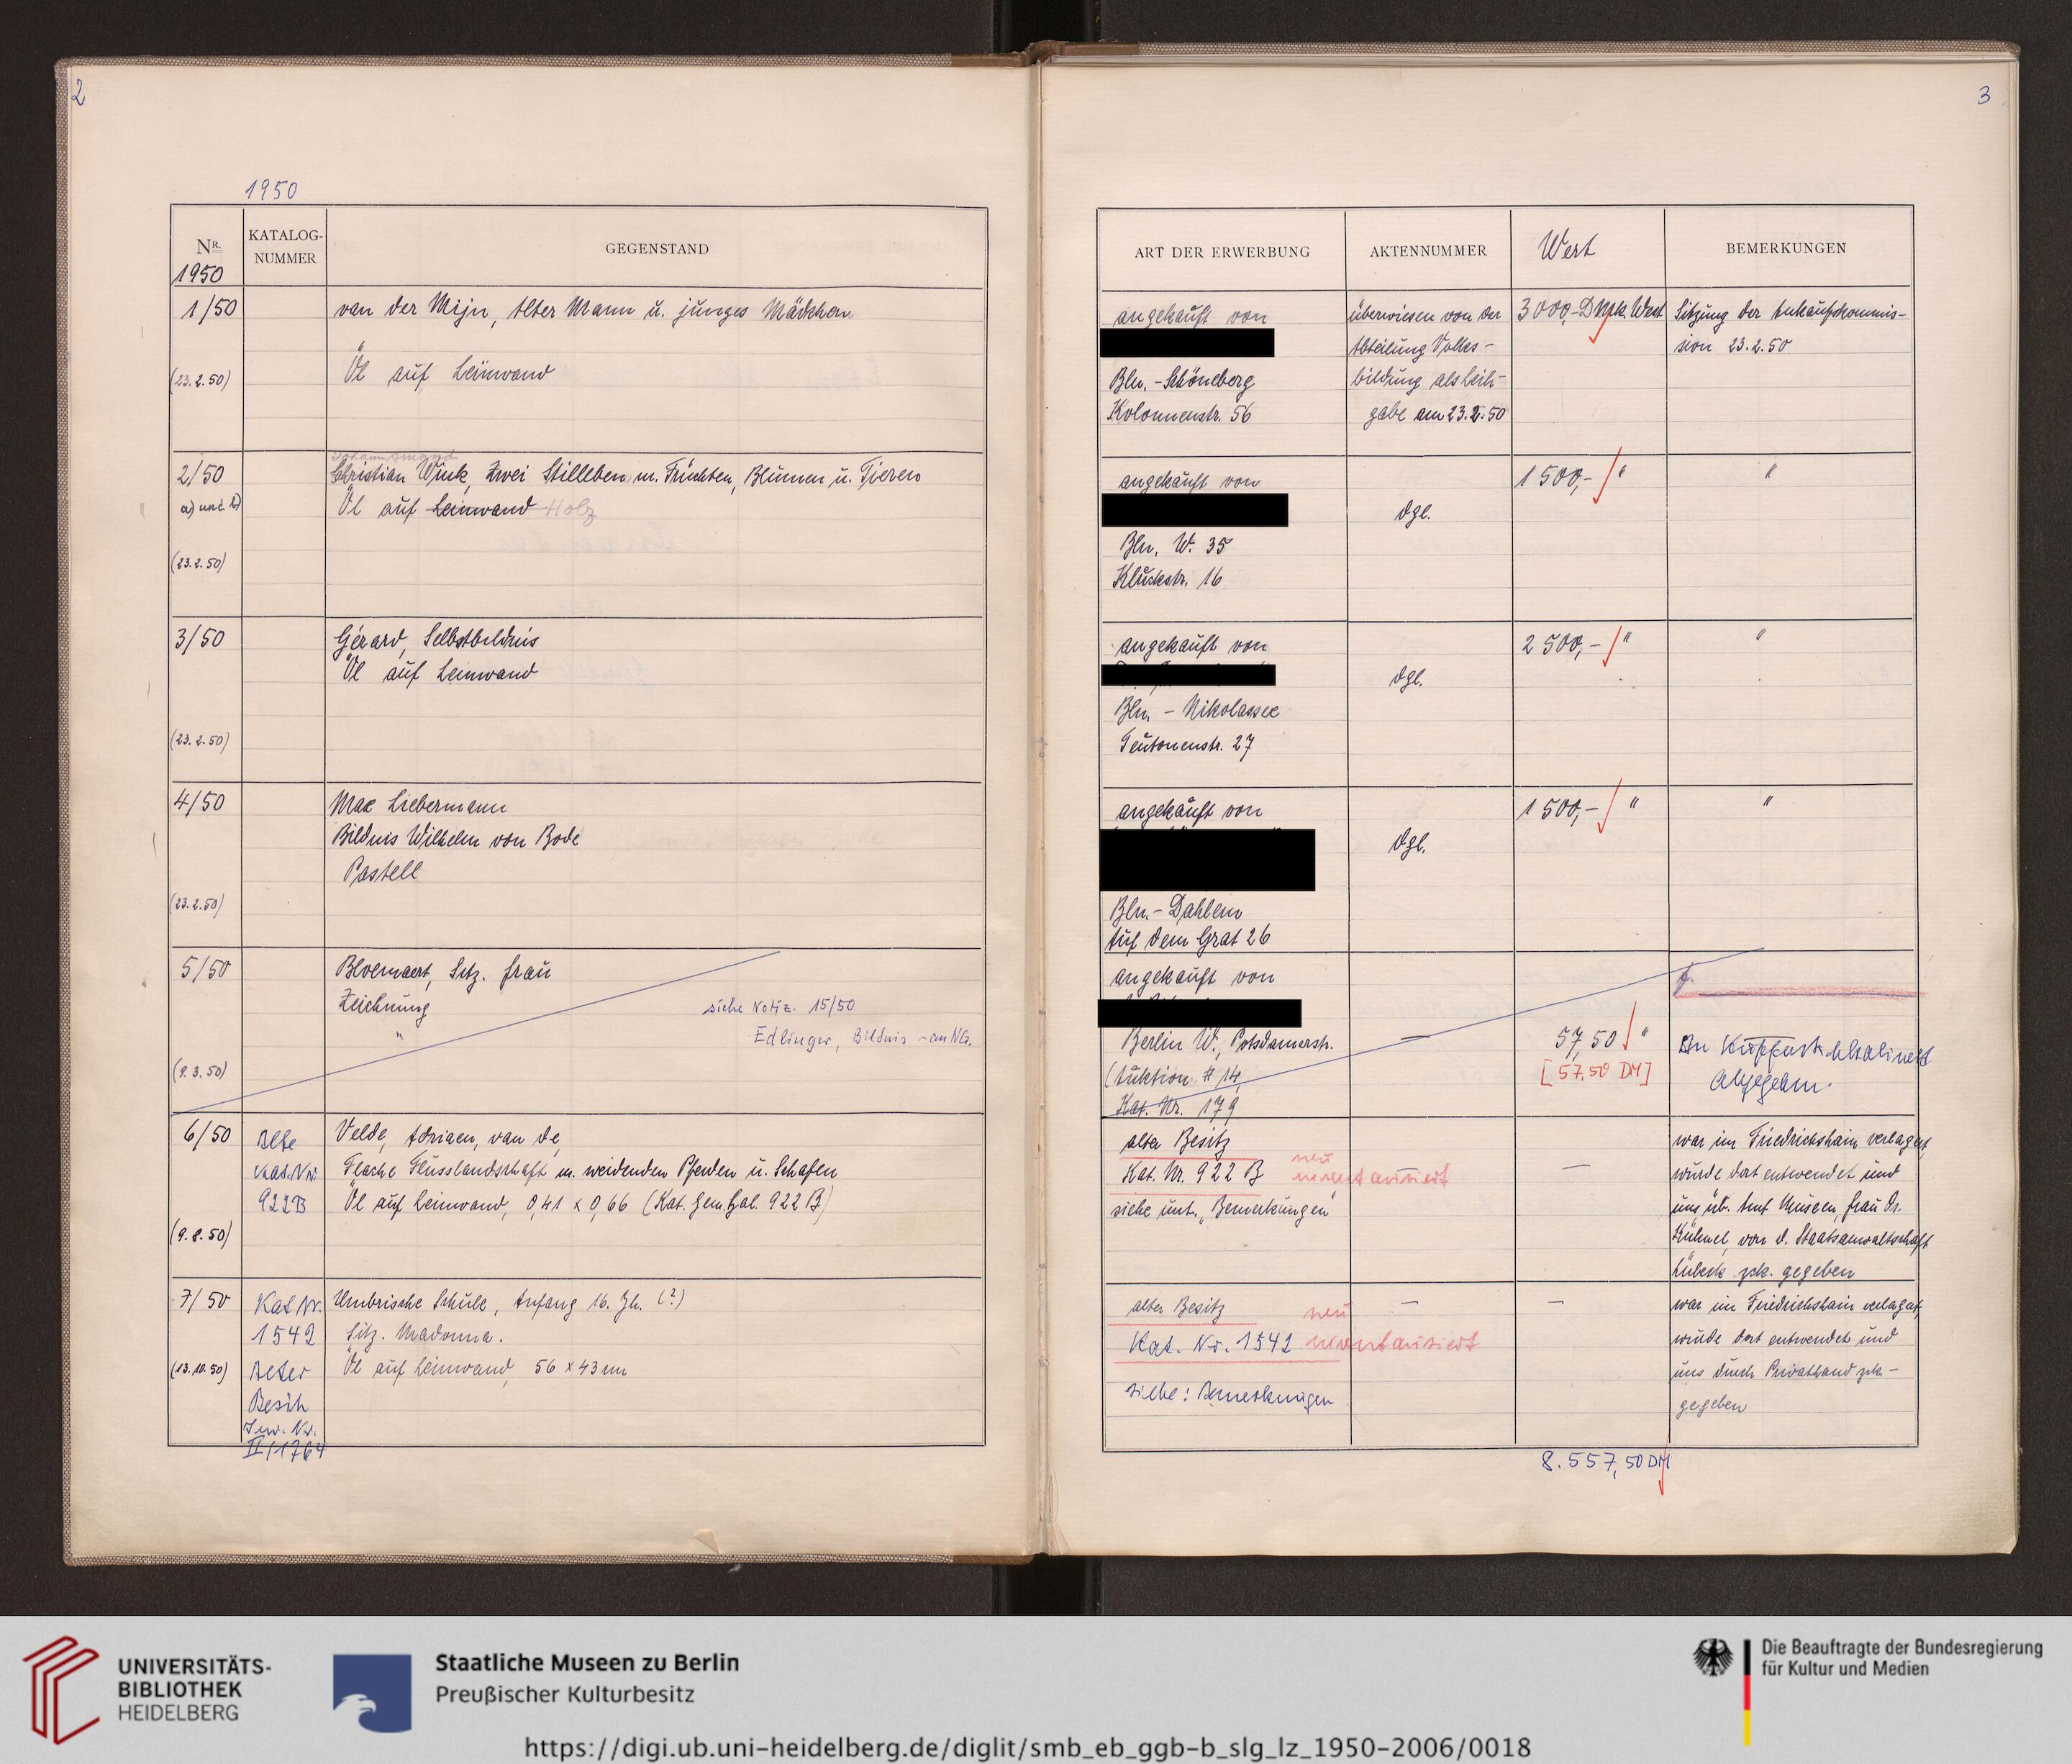 2
1950
NR.
1950
KATALOG-
NUMMER
GEGENSTAND
1/50
van der Mijn, Alter Mann u. junges Mädchen
Öl auf Leinwand
(23.2.50)
Johann Amand
2/50
Christian Wink, Zwei Stilleben m. Früchten, Blumen u. Tieren
a) und b)
Öl auf Leinwand Holz
(23.2.50)
3/50
Gérard, Selbstbildnis
Öl auf Leinwand
(23.2.50)
4/50
Max Liebermann
Bildnis Wilhelm von Bode
Pastell
(23.2.50)
5/50
Bloemaert, Sitz. Frau
Zeichnung
siehe Notiz. 15/50
Edlinger, Bildnis - an NG.
(9.3.50)
6/50
Alte
Kat. Nr.
922B
Velde, Adriaen, van de,
Flache Flusslandschaft m. weidenden Pferden u. Schafen
Öl auf Leinwand, 0,41 x 0,66 (Kat. Gem. Gal. 922 B)
(9.8.50)
7/50
Kat Nr.
1542
Alter
Besitz
Inv. Nr.
II/1764
Umbrische Schule, Anfang 16. Jh. (?)
Sitz. Madonna.
Öl auf Leinwand, 56 x 43 cm
(13.10.50)
3
ART DER ERWERBUNG
AKTENNUMMER
Wert
BEMERKUNGEN
angekauft von
Bln.-Schöneberg
Kolonnenstr. 56
überwiesen von der
Abteilung Volks-
bildung als Leih-
gabe am 23.2.50
3000,- DMk. West
Sitzung der Ankaufskommis-
sion 23.2.50
angekauft von
Bln. W. 35
Kluckstr. 16
dgl.
1500,- "
"
angekauft von
Bln. - Nikolassee
Teutonenstr. 27
dgl.
2500,- "
"
angekauft von
Bln.- Dahlem
Auf dem Grat 26
dgl.
1500,- "
"
angekauft von
Berlin W., Potsdamerstr.
(Auktion # 14,
Kat. Nr. 179
—
57,50 "
[57.50 DM]
An Kupferstichkabinett
abgegeben.
alter Besitz
Kat. Nr. 922 B
neu
inventarisiert
siehe unt. "Bemerkungen"
—
—
war im Friedrichshain verlagert,
wurde dort entwendet und
uns üb. Amt Museen, Frau Dr.
Kühnel, von d. Staatsanwaltschaft
Lübeck zck. gegeben
alter Besitz
Kat. Nr. 1542
neu
inventarisiert
siehe: Bemerkungen
—
—
war im Friedrichshain verlagert,
wurde dort entwendet und
uns durch Privathand zck-
gegeben
8.557,50 DM
UNIVERSITÄTS-
BIBLIOTHEK
HEIDELBERG
Staatliche Museen zu Berlin
Preußischer Kulturbesitz
Die Beauftragte der Bundesregierung
für Kultur und Medien
https://digi.ub.uni-heidelberg.de/diglit/smb_eb_ggb-b_slg_lz_1950-2006/0018